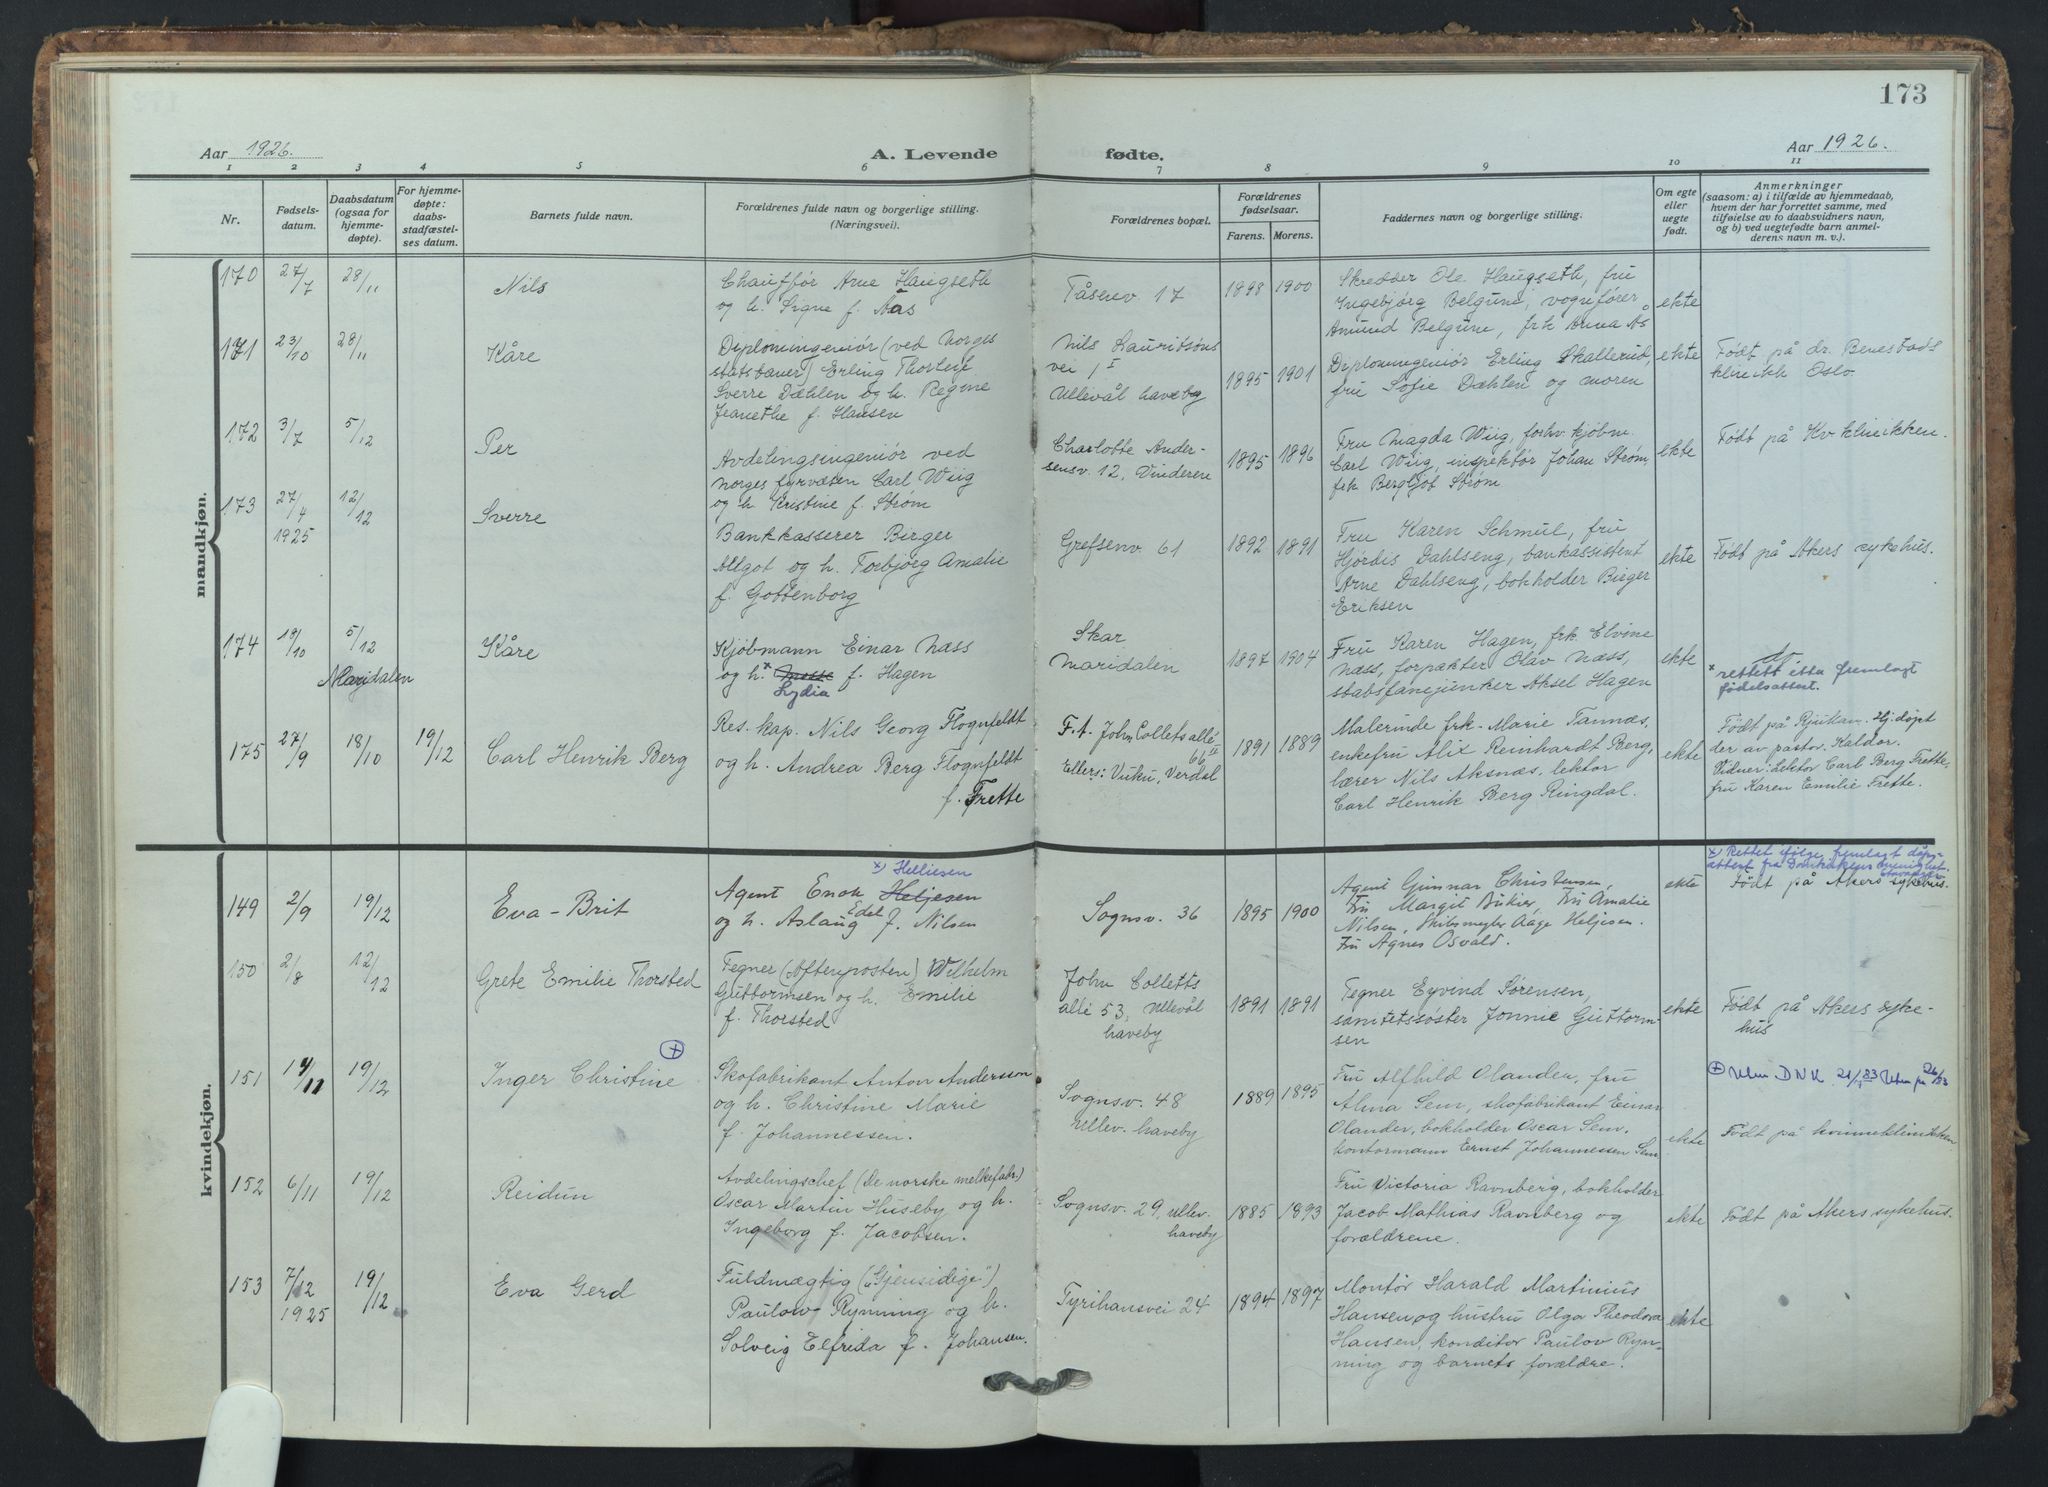 173
Aar 1926.
A. Levende fødte.
Aar 1926.
1 2 3 4 5 6 7 8 9 10 11
Nr.
Fødsels-
datum.
Daabsdatum
(ogsaa for
hjemme-
døpte).
For hjemme-
døpte:
daabs-
stadfæstel-
ses datum.
Barnets fulde navn.
Forældrenes fulde navn og borgerlige stilling.
(Næringsvei).
Forældrenes bopæl.
Forældrenes
fødselsaar.
Farens. Morens.
Faddernes navn og borgerlige stilling.
Om egte
eller
uegte
født.
Anmerkninger
(saasom: a) i tilfælde av hjemmedaab,
hvem der har forrettet samme, med
tilføielse av to daabsvidners navn,
og b) ved uegtefødte barn anmel-
derens navn m. v.).
mandkjøn.
170 27/7 28/11 Nils
Chauffør Arne Haugseth
og h. Signe f. Aas
Tåsenv 17
1898 1900
Skredder Ole Haugseth, fru
Ingebjørg Belgum, vognfører
Amund Belgum, frk Anna Ås
ekte
171 23/10 28/11 Kåre
Diplomingeniør (ved norges
statsbaner) Erling Thorleif
Sverre Dæhlen og h. Regine
Jeanethe f. Hansen
Nils Lauritsøns
vei 1 I
Ullevål haveby
1895 1901
Diplomingeniør Erling Skallerud,
fru Sofie Dæhlen og moren
ekte
Født på dr. Benestads
klinikk Oslo.
172 3/7 5/12 Per
Avdelingsingeniør ved
norges fyrvæsen Carl Wiig
og h. Kristine f. Strøm
Charlotte Ander-
sensv. 12, Vinderen
1895 1896
Fru Magda Wiig, forhv. kjøbm.
Carl Wiig, inspektør Johan Strøm,
frk Bergljot Strøm
ekte
Født på Kv.klinikken.
173 27/4 1925 12/12 Sverre
Bankkasserer Birger
Algot og h. Torbjørg Amalie
f. Gottenborg
Grefsenv. 61
1892 1891
Fru Karen Schmul, fru
Hjørdis Dahlseng, bankassistent
Arne Dahlseng, bokholder Birger
Eriksen
ekte
Født på Akers sykehus.
174 18/10 5/12 Maridalen Kåre
Kjøbmann Einar Næss
og h. × f. Hagen
Lydia
Skar
Maridalen
1897 1904
Fru Karen Hagen, frk. Elvine
Næss, forpakter Olav Næss,
stabsfanejunker Aksel Hagen
ekte
× rettett etter fremlagt
fødelsattest.
175 27/9 18/10 19/12 Carl Henrik Berg
Res. kap. Nils Georg Flognfeldt
og h. Andrea Berg Flognfeldt
f. Frette
F.t. John Colletts allé
66 II
Ellers: Vuku, Verdal
1891 1889
Malerinde frk. Marie Tannæs,
enkefru Alix Reinhardt Berg,
lærer Nils Aksnæs, lektor
Carl Henrik Berg Ringdal.
ekte
Født på Rjukan. Hj.døpt
der av pastor Kaldor.
Vidner: Lektor Carl Berg Frette,
fru Karen Emilie Frette.
kvindekjøn.
149 2/9 19/12 Eva-Brit
×) Helliesen
Agent Enok Heljesen
og h. Aslaug Edel f. Nilsen
Sognsv. 36
1895 1900
Agent Gunnar Christensen,
Fru Margit Bükier, Fru Amalie
Nilsen, Skibsmegler Aage Heljesen.
Fru Agnes Osvald.
ekte
×) Rettet ifølge fremlagt dåps-
attest fra Domkirkens menighet,
Stavanger.
Født på Akers sykehus.
150 2/8 12/12 Grete Emilie Thorsted
Tegner (Aftenposten) Wilhelm
Guttormsen og h. Emilie
f. Thorsted
John Colletts
allé 53, Ullevål
haveby
1891 1891
Tegner Eyvind Sørensen,
sanitetssøster Jonnie Guttorm-
sen
ekte
Født på Akers syke-
hus
151 14/11 19/12 Inger Christine +
Skofabrikant Anton Andersson
og h. Christine Marie
f. Johannessen.
Sognsv. 48
Ullev. haveby
1889 1895
Fru Alfhild Olander, fru
Alma Sem, skofabrikant Einar
Olander, bokholder Oscar Sem,
kontormann Ernst Johannessen Sem
ekte
+ Utm DNK
Født på kvinneklinikken
152 6/11 19/12 Reidun
Avdelingschef (De norske melkefabr.)
Oscar Martin Huseby og h.
Ingeborg f. Jacobsen.
Sognsv. 29, Ullev.
haveby
1885 1893
Fru Victoria Ravnberg, bokholder
Jacob Mathias Ravnberg og
forældrene.
ekte
Født på Akers sykehus.
153 7/12 1925 19/12 Eva Gerd
Fuldmægtig („Gjensidige")
Paulow Rynning og h.
Solveig Elfrida f. Johansen.
Tyrihansvei 24
1894 1897
Montør Harald Martinius
Hansen og hustru Olga Theodora
Hansen, konditor Paulov Ryn-
ning og barnets forældre.
ekte